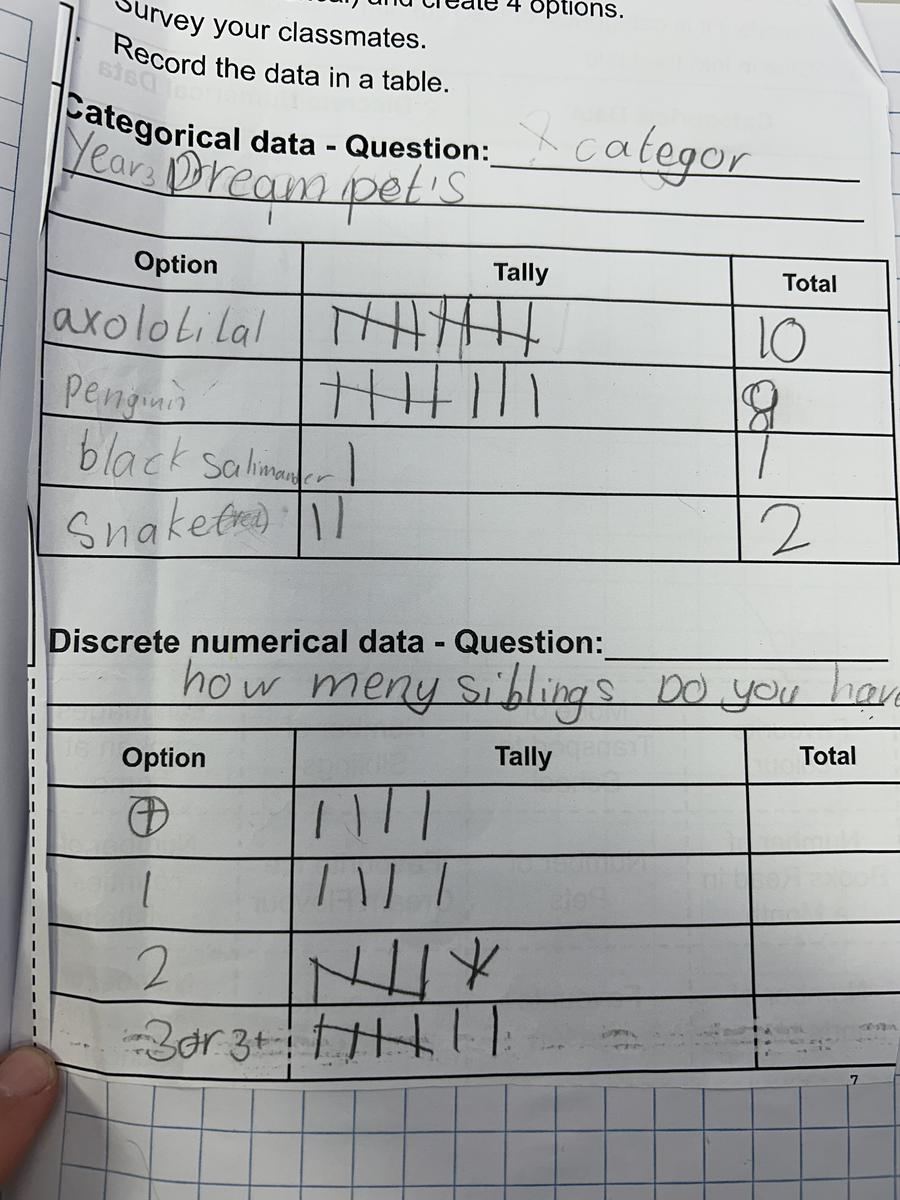 create 4 options.
Survey your classmates.
Record the data in a table.
Categorical data - Question: categor
Year 3 Dream pet's
Option Tally Total
axolotilal 10
Penginin 8
black salimander 1
Snake (red) 2
Discrete numerical data - Question:
how meny siblings Do you have
Option Tally Total
0
1
2
3 or 3+
7